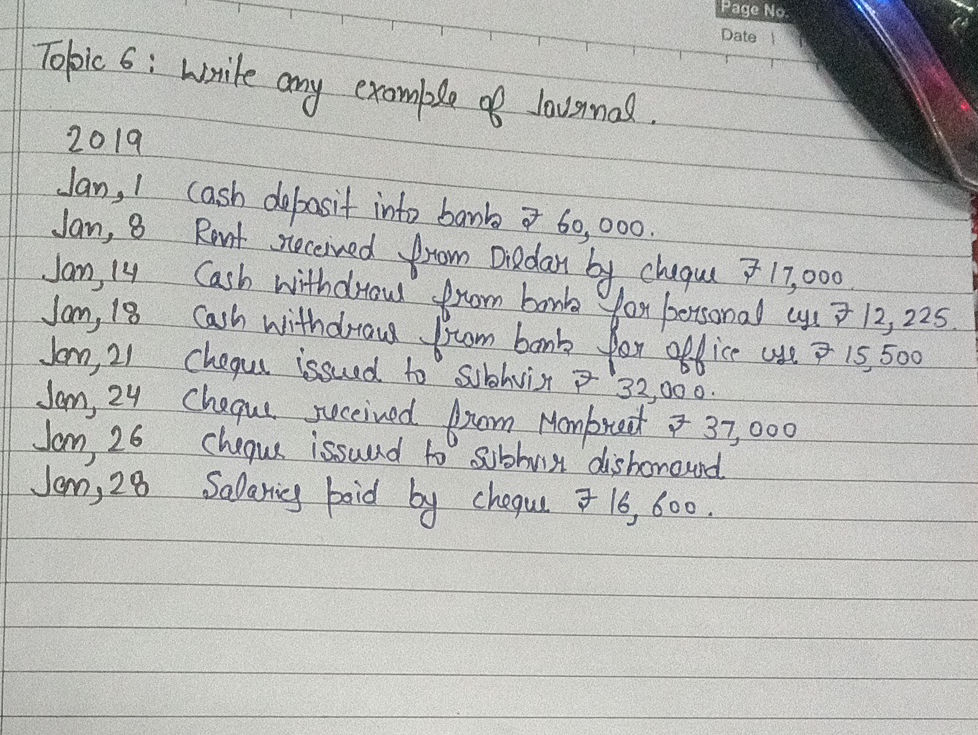 Page No.
Date
Topic 6: Write any example of Journal.
2019
Jan, 1 Cash deposit into bank ₹ 60,000.
Jan, 8 Rent received from Dildar by cheque ₹ 17,000.
Jan, 14 Cash withdraw from bank for personal use ₹ 12,225.
Jan, 18 Cash withdraw from bank for office use ₹ 15,500
Jan, 21 Cheque issued to Subhvir ₹ 32,000.
Jan, 24 Cheque received from Manpreet ₹ 37,000
Jan, 26 Cheque issued to Subhvir dishonourd
Jan, 28 Salaries paid by cheque ₹ 16,600.